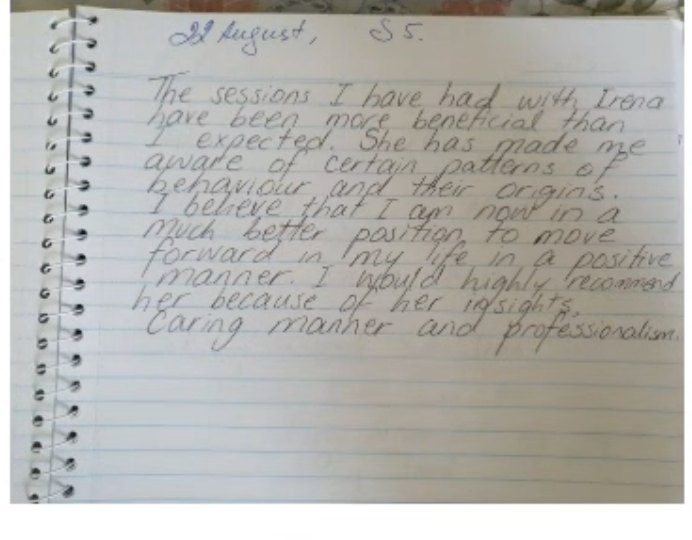 22 August, S 5.
The sessions I have had with Irena
have been more beneficial than
I expected. She has made me
aware of certain patterns of
behaviour and their origins.
I believe that I am now in a
much better position to move
forward in my life in a positive
manner. I would highly recommend
her because of her insights,
Caring manner and professionalism.